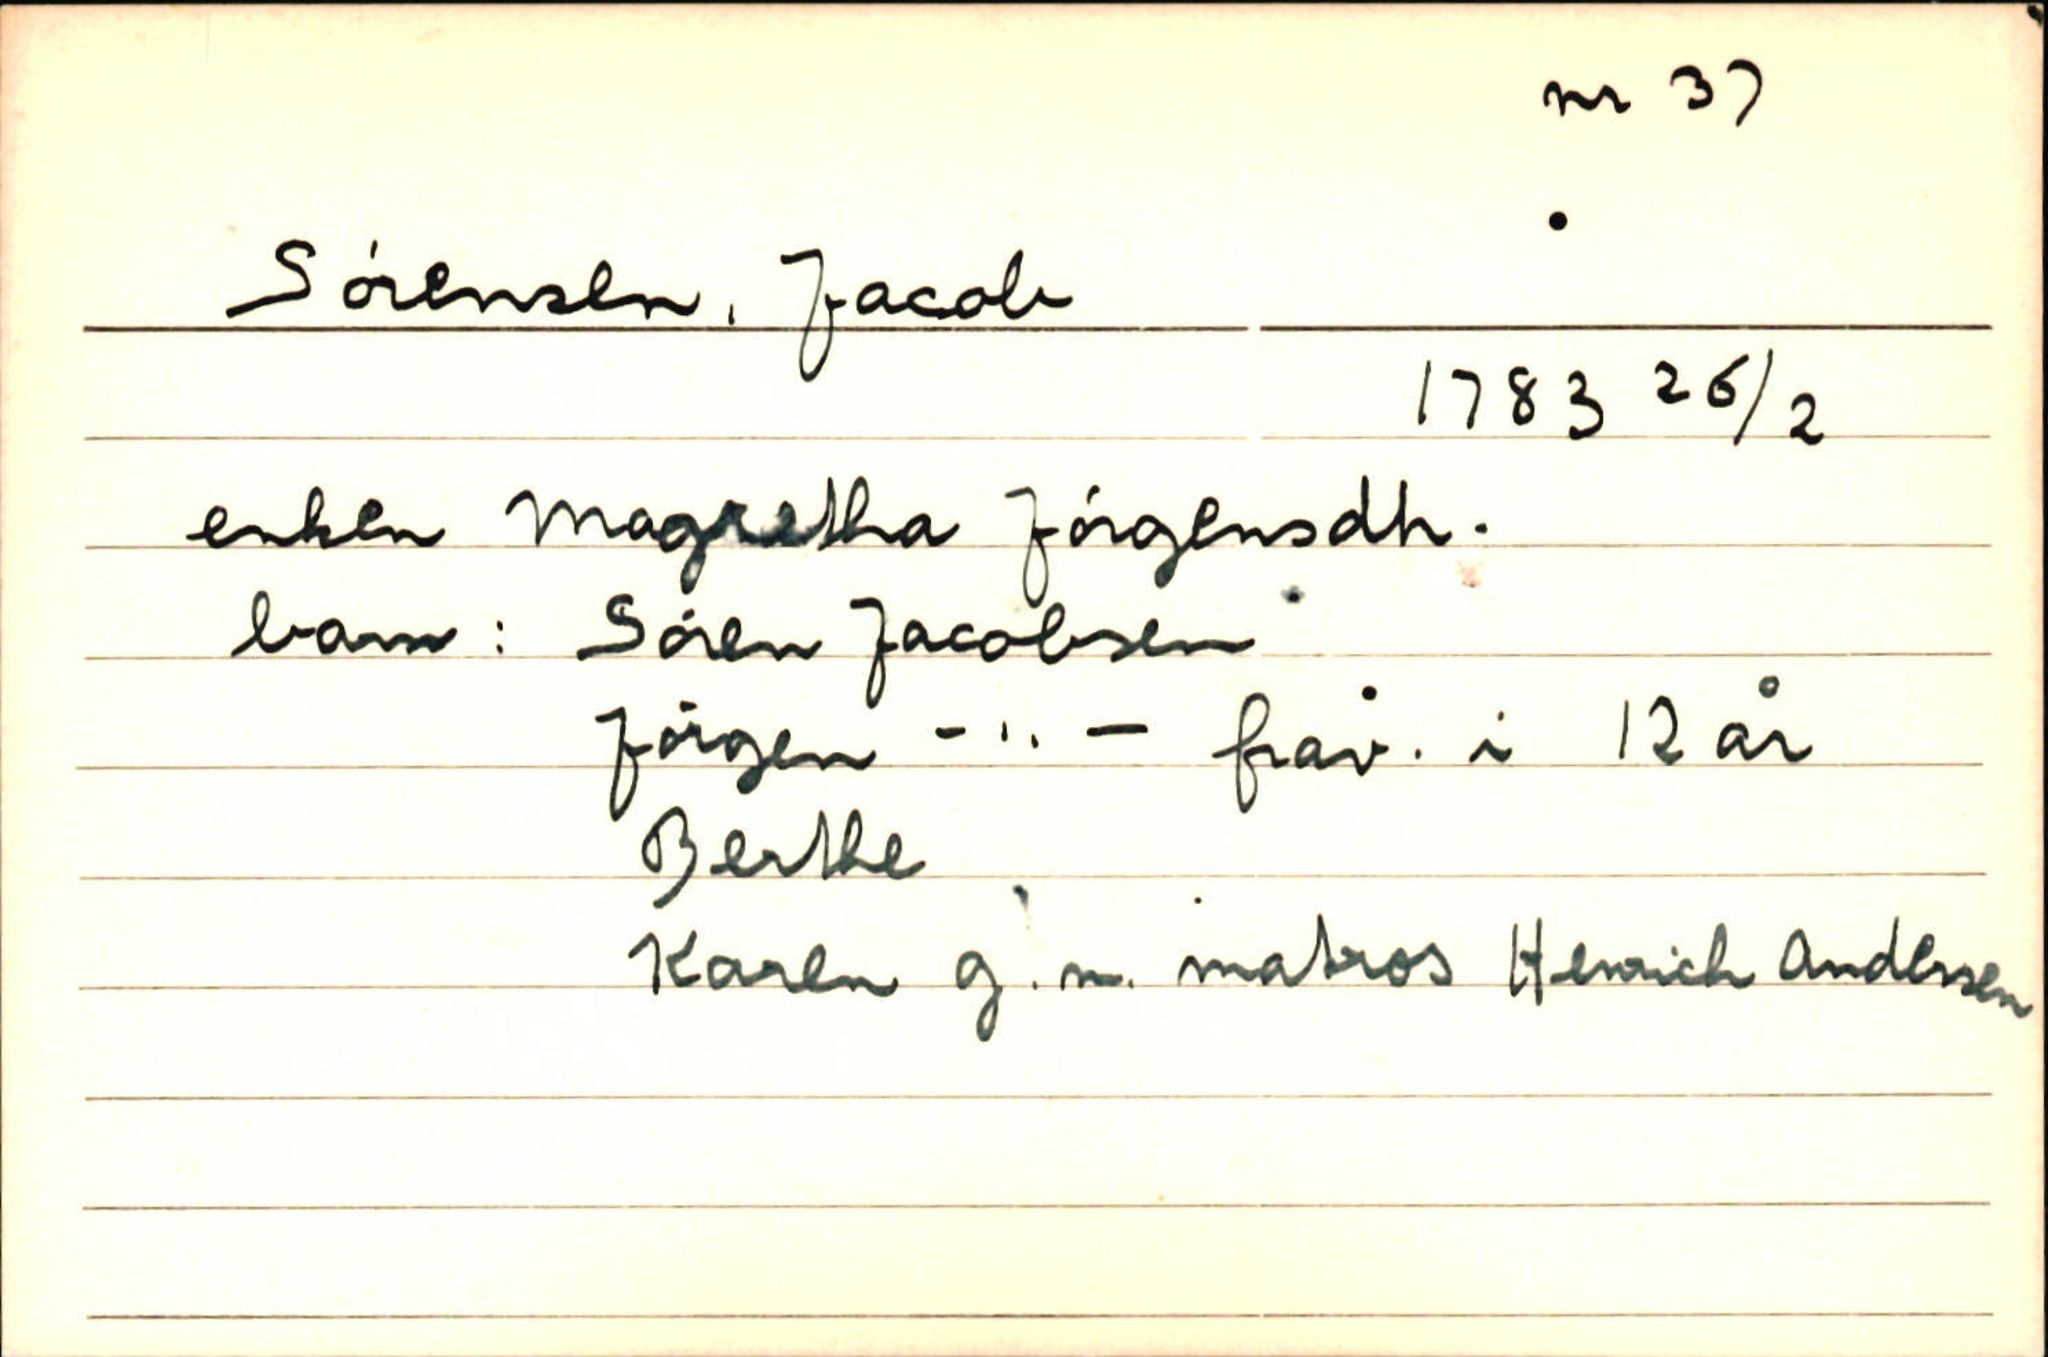 nr 37
Sørensen, Jacob
1783 26/2
enken Magretha Jørgensdtr.
barn: Søren Jacobsen
Jørgen - " - frav. i 12 år
Berthe
Karen g.m. matros Henrich Andersen